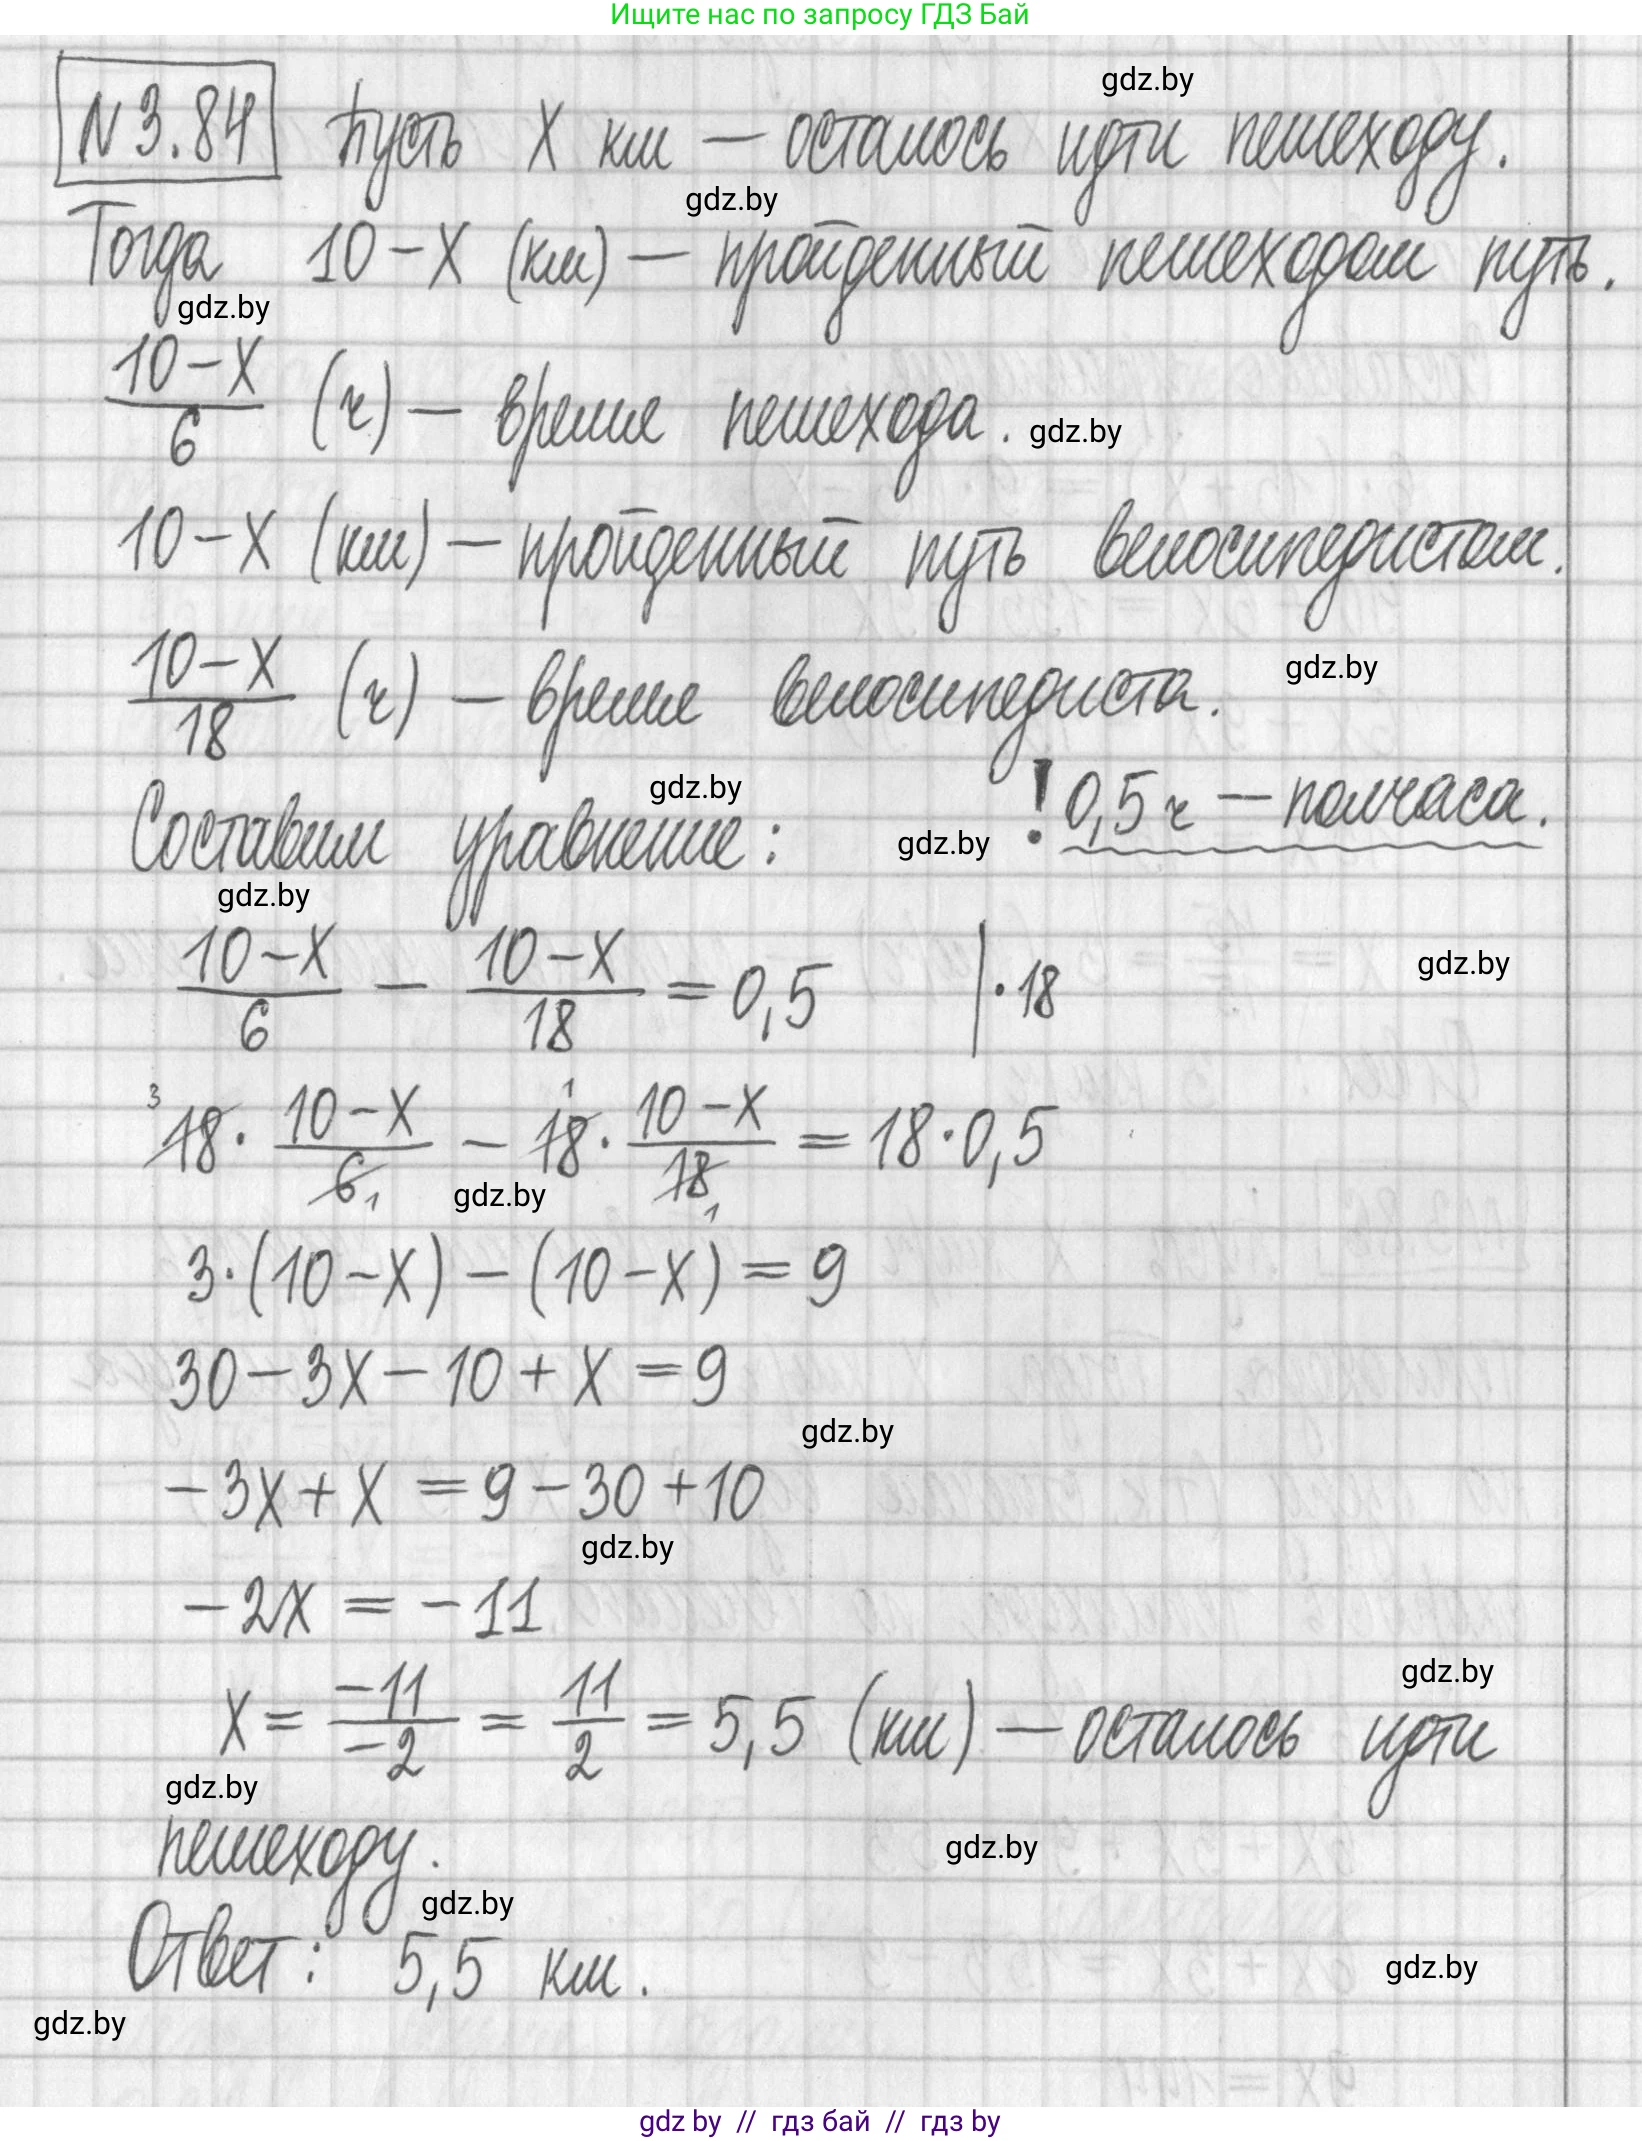 Ищите нас по запросу ГДЗ Бай
gdz.by
N 3.84 Пусть X км — осталось идти пешеходу.
gdz.by
Тогда 10 - X (км) — пройденный пешеходом путь.
gdz.by
10 - X / 6 (ч) — время пешехода. gdz.by
10 - X (км) — пройденный путь велосипедистом.
10 - X / 18 (ч) — время велосипедиста. gdz.by
gdz.by ! 0,5 ч — полчаса.
Составим уравнение: gdz.by
gdz.by
10 - X / 6 - 10 - X / 18 = 0,5 | · 18 gdz.by
3 18 · 10 - X / 6 1 - 1 18 · 10 - X / 18 1 = 18 · 0,5
gdz.by
3 · (10 - X) - (10 - X) = 9
30 - 3X - 10 + X = 9
gdz.by
-3X + X = 9 - 30 + 10
gdz.by
-2X = -11
gdz.by
X = -11 / -2 = 11 / 2 = 5,5 (км) — осталось идти
gdz.by
пешеходу. gdz.by
gdz.by
Ответ: 5,5 км. gdz.by
gdz.by
gdz by // гдз бай // гдз by